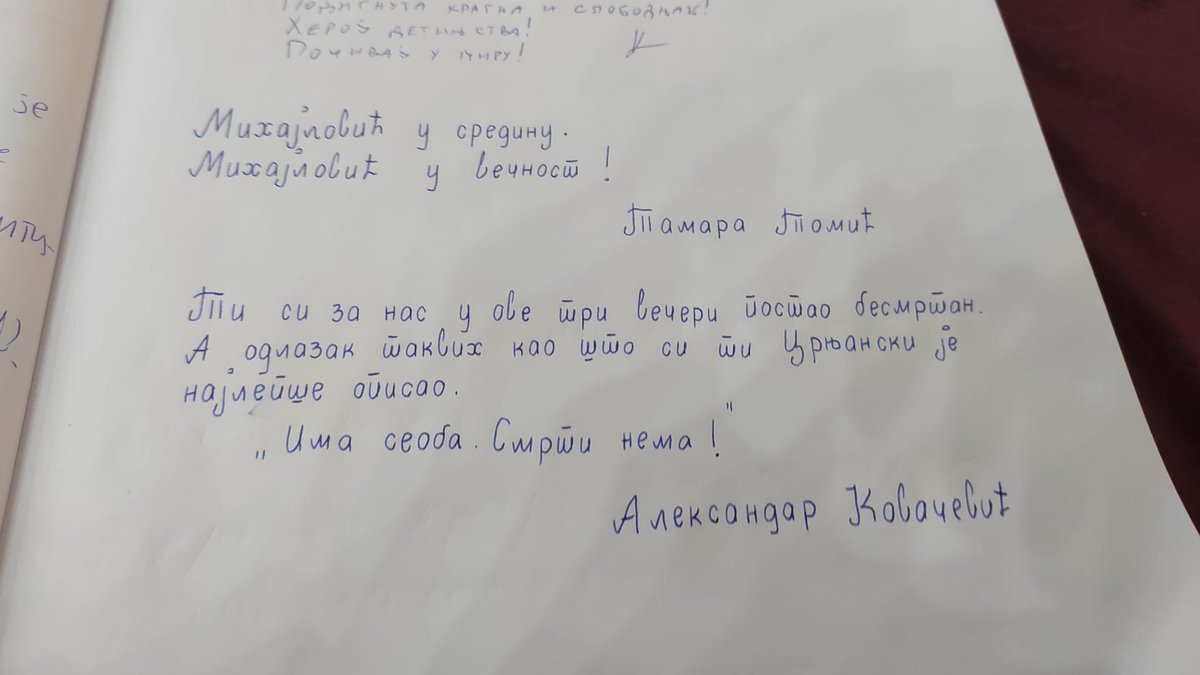 Подигнута крагна и слободњак!
Херој детињства!
Почивај у миру!
је
Михајловић у средину.
Михајловић у вечност!
Тамара Томић
Ти си за нас у ове три вечери постао бесмртан.
А одлазак таквих као што си ти Црњански је
најлепше описао.
„Има сеоба. Смрти нема!"
Александар Ковачевић